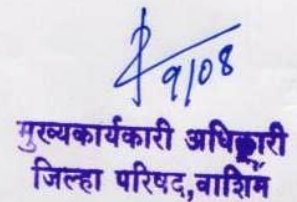 9/08
मुख्यकार्यकारी अधिकारी
जिल्हा परिषद,वाशिम